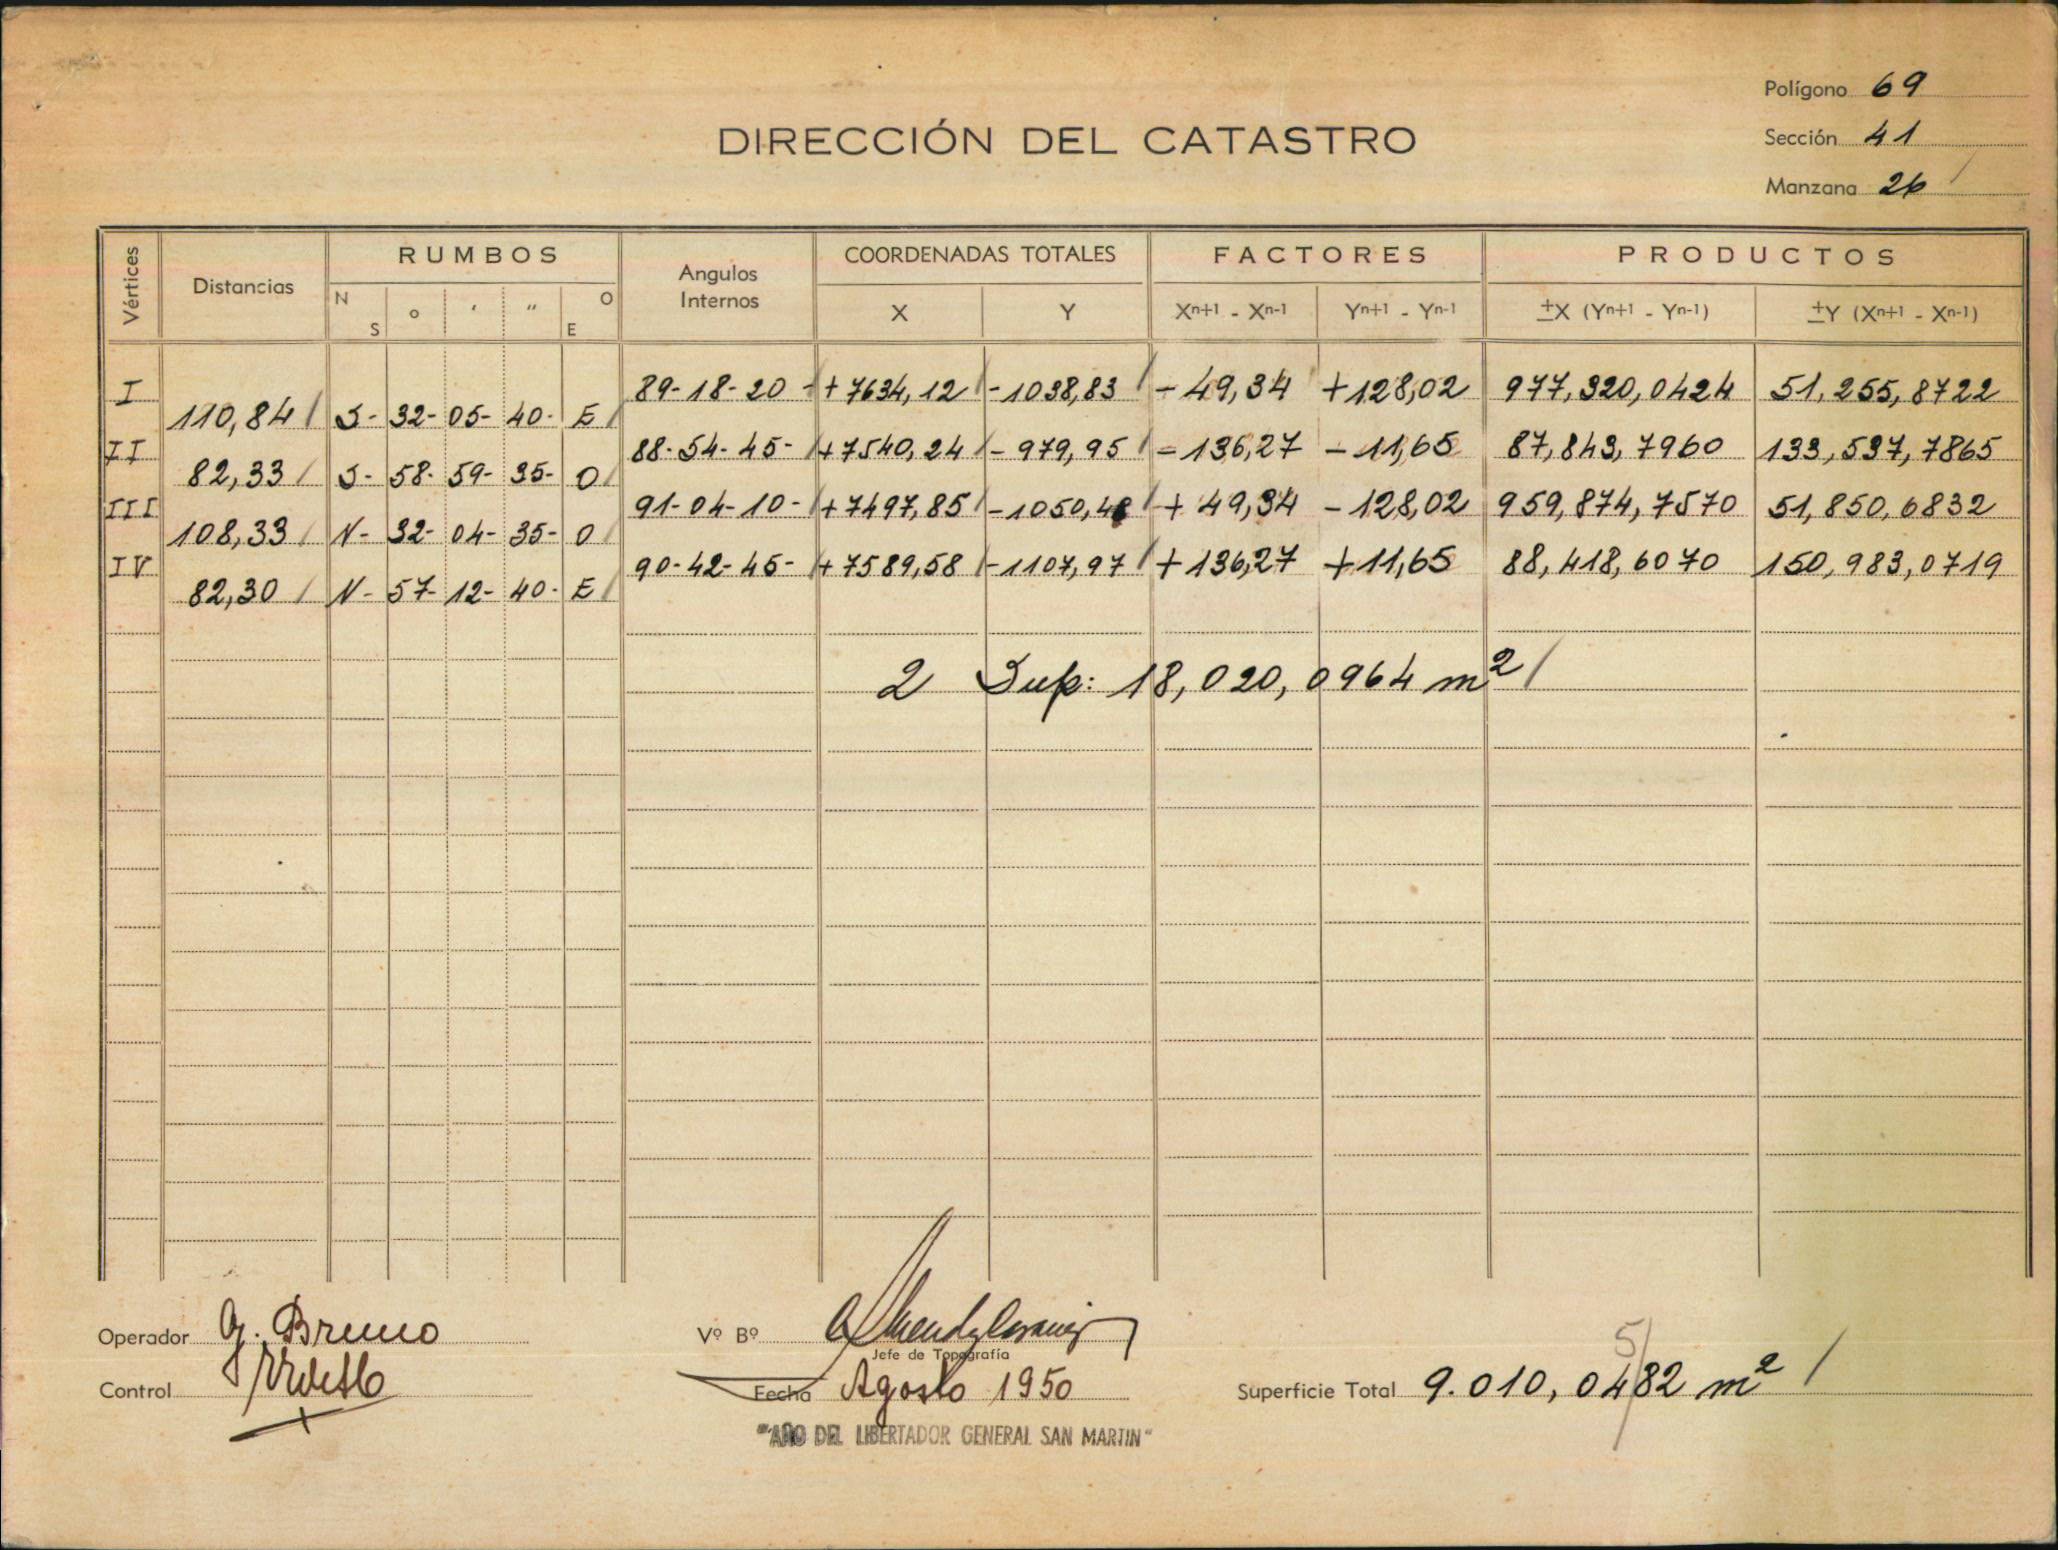 Polígono 69
DIRECCIÓN DEL CATASTRO
Sección 41
Manzana 26
Vértices Distancias RUMBOS Angulos Internos COORDENADAS TOTALES FACTORES PRODUCTOS
N S ° ' " O E X Y Xn+1 - Xn-1 Yn+1 - Yn-1 ±X (Yn+1 - Yn-1) ±Y (Xn+1 - Xn-1)
I 89-18-20- +7634,12 -1038,83 -49,34 +128,02 977,320,0424 51,255,8722
110,84 S- 32- 05- 40- E
II 88-54-45- +7540,24 -979,95 -136,27 -11,65 87,843,7960 133,537,7865
82,33 S- 58- 59- 35- O
III 91-04-10- +7497,85 -1050,48 +49,34 -128,02 959,874,7570 51,850,6832
108,33 N- 32- 04- 35- O
IV 90-42-45- +7589,58 -1107,97 +136,27 +11,65 88,418,6070 150,983,0719
82,30 N- 57- 12- 40- E
2 Sup: 18,020,0964 m²
Operador G. Bruno
Vº Bº
Jefe de Topografía
Control
Fecha Agosto 1950
Superficie Total 9.010,0482 m²
5
"AÑO DEL LIBERTADOR GENERAL SAN MARTIN"